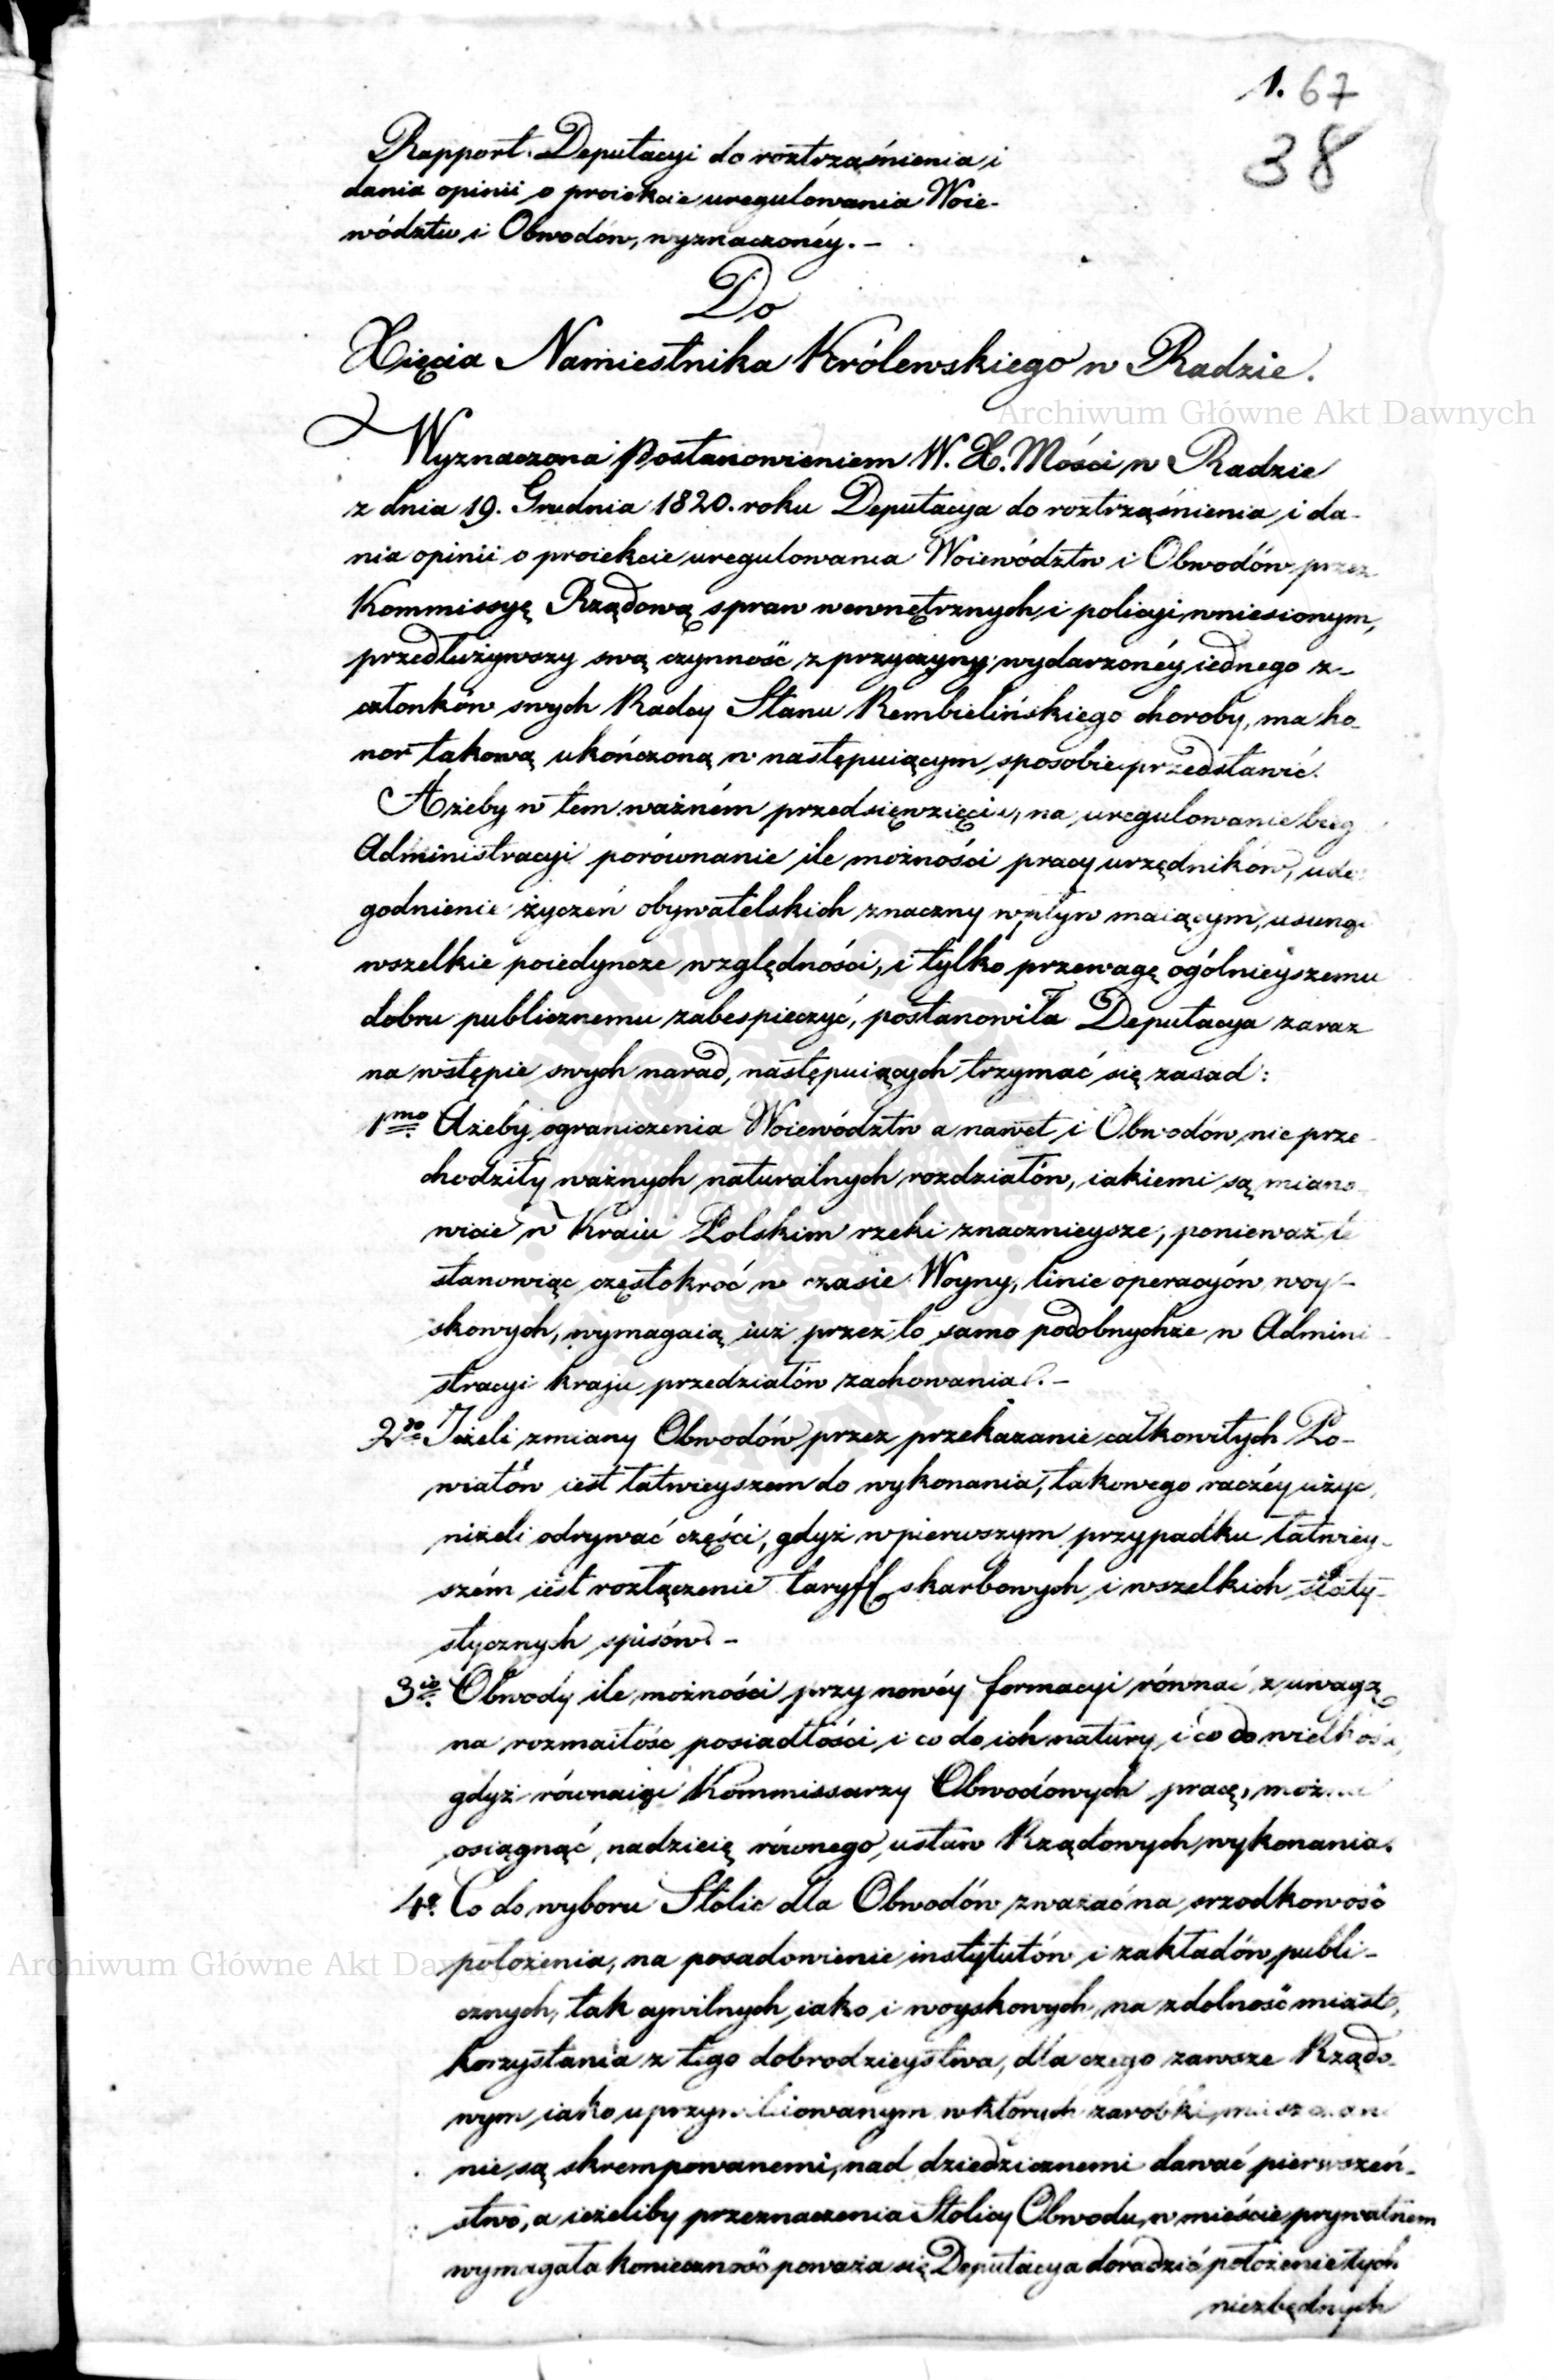 1. 67
38
Rapport Deputacyi do roztrząśnienia i
dania opinii o proiekcie uregulowania Woie-
wództw i Obwodów, wyznaczonéy. –
Do
Xięcia Namiestnika Królewskiego w Radzie.
Archiwum Główne Akt Dawnych
Wyznaczona Postanowieniem W. X. Mości w Radzie
z dnia 19. Grudnia 1820. roku Deputacya do roztrząśnienia i da-
nia opinii o proiekcie uregulowania Woiewództw i Obwodów przez
Kommissyę Rządową spraw wewnętrznych i policyi wniesionym,
przedłużywszy swą czynność z przyczyny wydarzonéy iednego z-
członków swych Radcy Stanu Rembielińskiego choroby, ma ho-
nor takową ukończoną w następuiącym sposobie przedstawić.
Ażeby w tem ważném przedsięwzięciu, na uregulowanie bieg
Administracyi porównanie ile możności pracy urzędników,
godnienie życzeń obywatelskich znaczny wpływ maiącym, usunąć
wszelkie poiedyncze względności, i tylko przewagę ogólnieyszemu
dobru publicznemu zabespieczyć, postanowiła Deputacya zaraz
na wstępie swych narad, następuiących trzymać się zasad:
1mo Ażeby ograniczenia Woiewództw a nawet i Obwodów nie prze-
chodziły ważnych naturalnych rozdziałów, iakiemi są miano-
wicie w Kraiu Polskim rzeki znacznieysze, ponieważ te
stanowiąc częstokroć w czasie Woyny, linie operacyów woy-
skowych, wymagaią iuż przez to samo podobnychże w Admini-
stracyi kraju przedziałów zachowania. –
2do Jeżeli zmiany Obwodów przez przekazanie całkowitych Po-
wiatów iest łatwieyszem do wykonania, takowego raczéy użyć,
niżeli odrywać części, gdyż w pierwszym przypadku łatwiey-
szém iest rozłączenie taryff skarbowych i wszelkich staty-
stycznych spisów. –
3io Obwody ile możności przy nowéy formacyi równać z uwagą
na rozmaitość posiadłości i co do ich natury, i co do wielkości,
gdyż równaiąc Kommissarzy Obwodowych pracę, można
osiągnąć nadzieię równego ustaw Rządowych wykonania.
4o Co do wyboru Stolic dla Obwodów zważać na srzodkowość
położenia, na posadowienie instytutów i zakładów publi-
Archiwum Główne Akt Dawnych
cznych, tak cywilnych iako i woyskowych, na zdolność miast,
korzystania z tego dobrodzieystwa, dla czego zawsze Rządo-
wym iako uprzywileiowanym w których zarobki mieszczan
nie są skrempowanemi, nad dziedzicznemi dawać pierwszeń-
stwo, a ieżeliby przeznaczenia Stolicy Obwodu, w mieście prywatnem
wymagała konieczność poważa się Deputacya doradzić położenie tych
niezbędnych